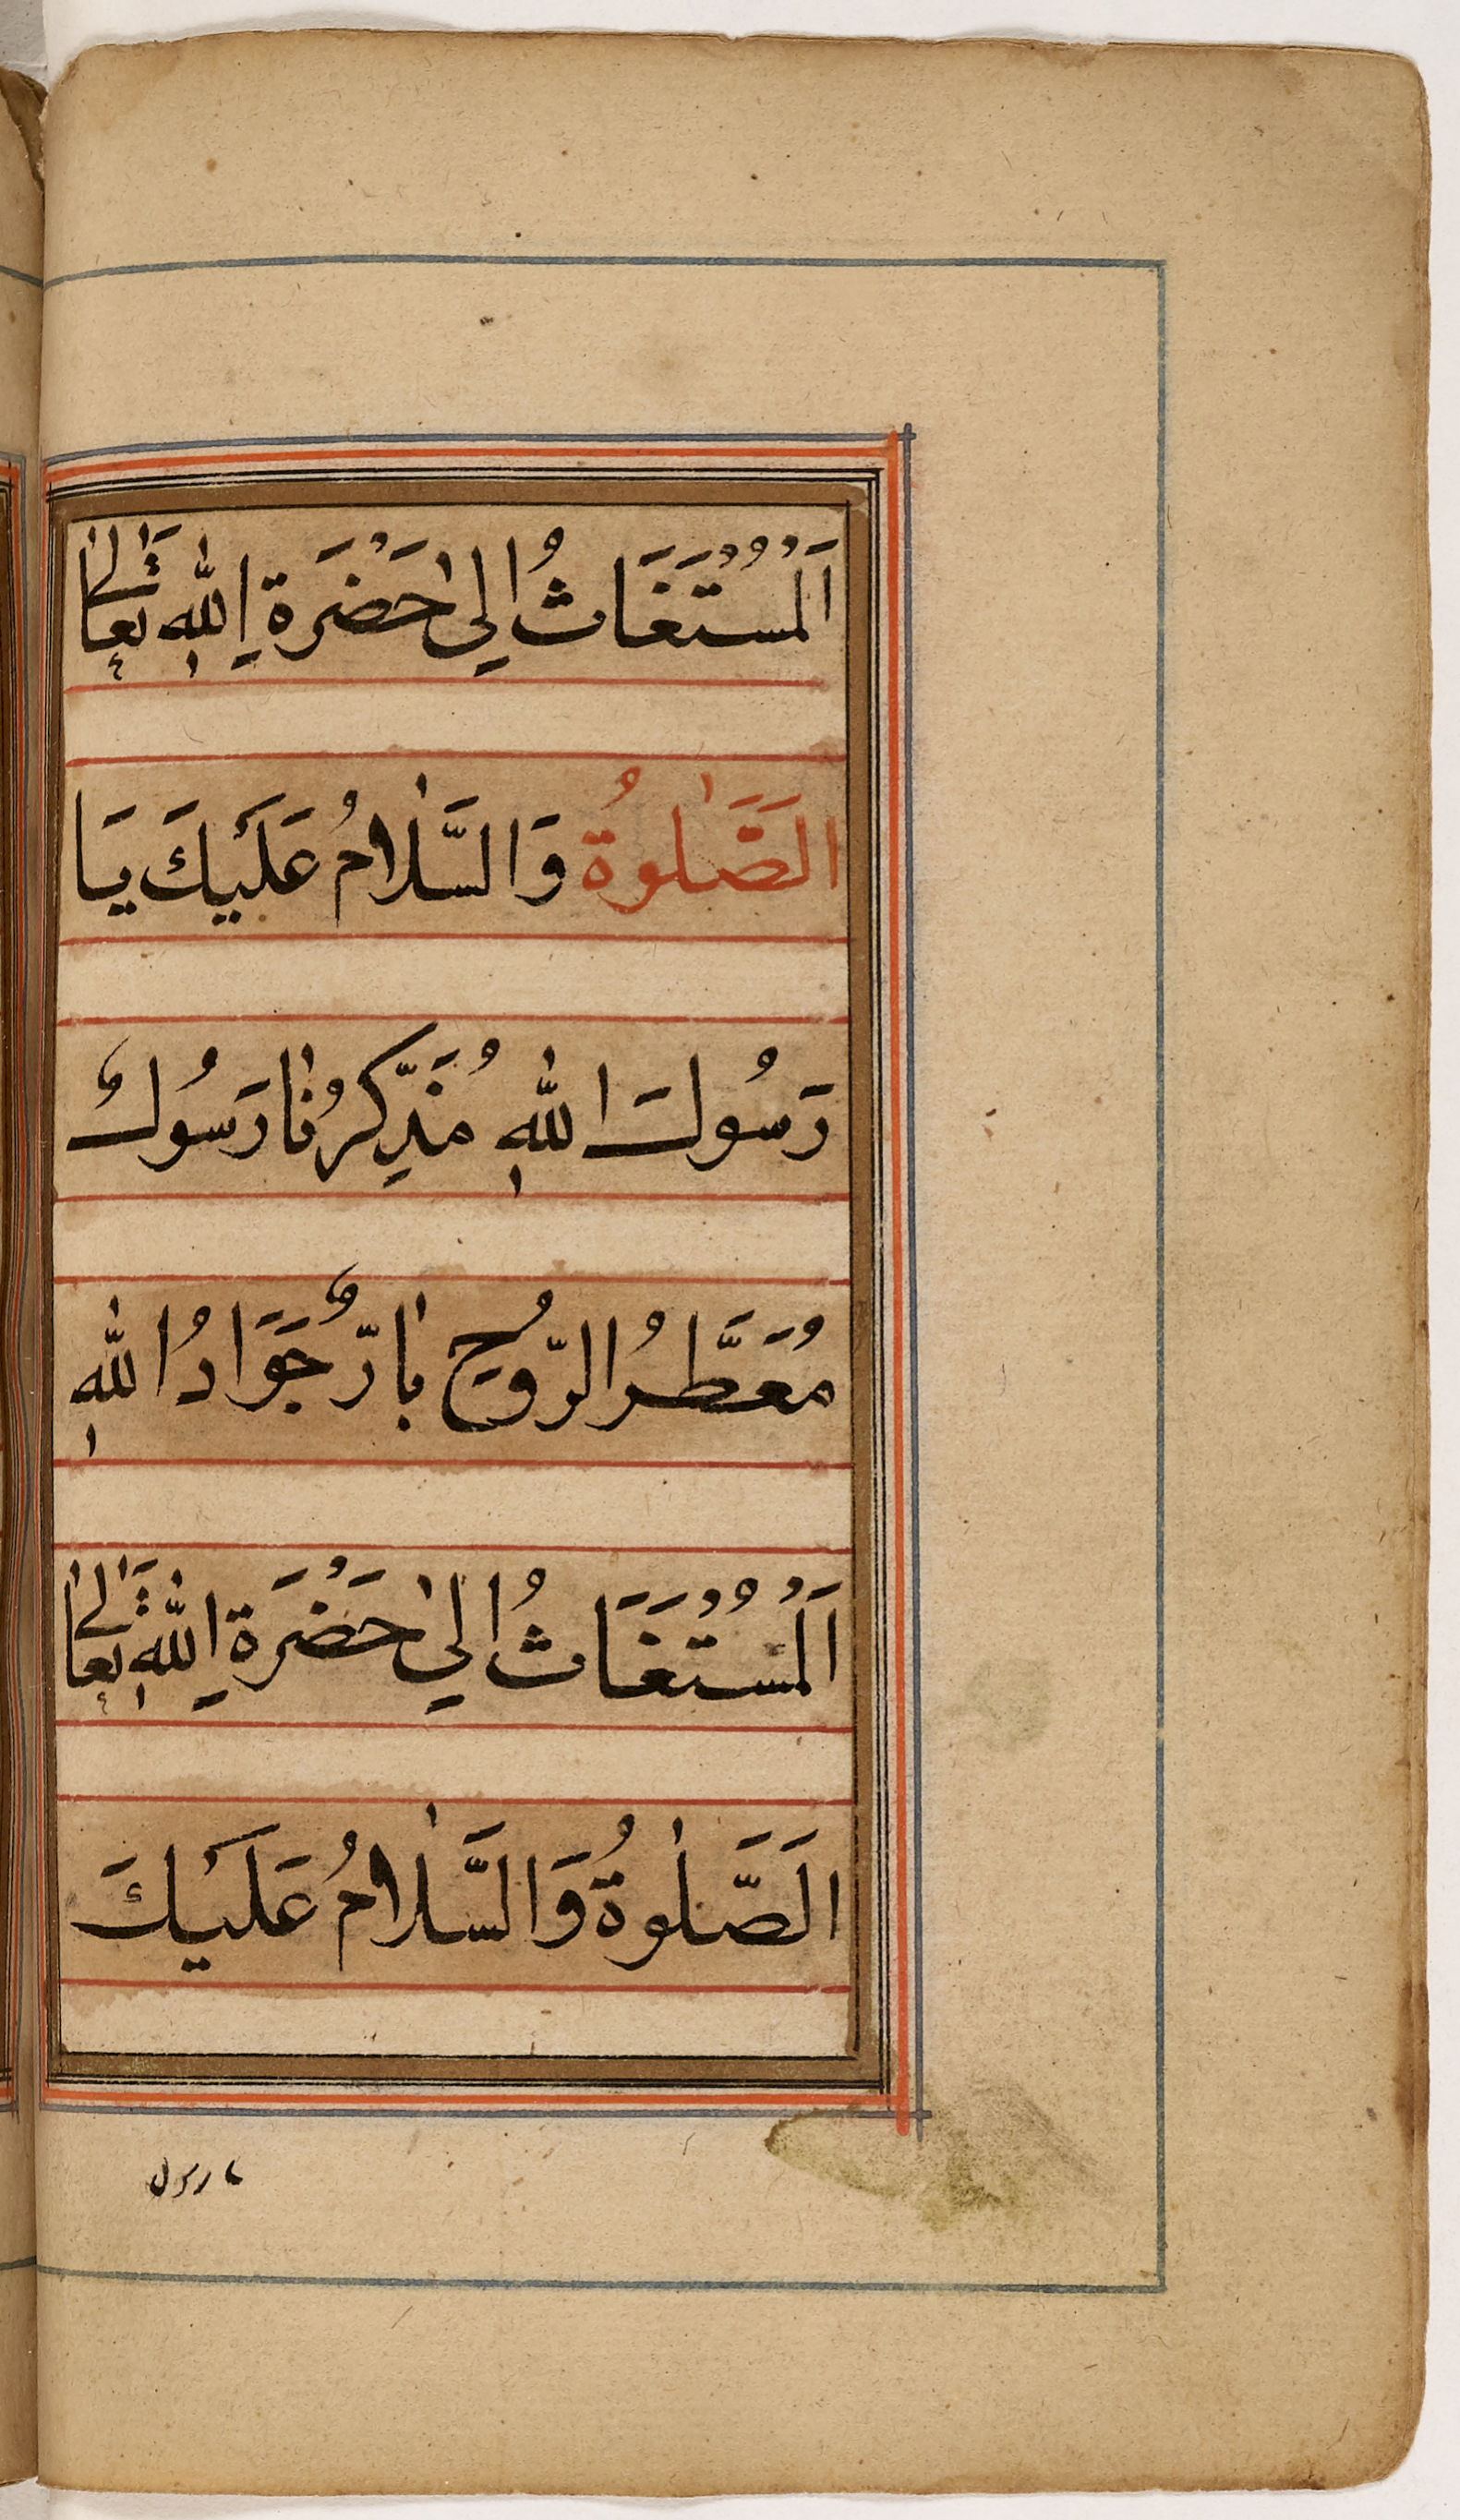 اَلْمُسْتَغَاثُ اِلىٰ حَضْرَةِ اللّٰهِ تَعَالىٰ
الَصَّلٰوةُ وَالسَّلٰامُ عَلَيْكَ يَا
رَسُولَ اللّٰهِ مُذَكِّرُنٰا رَسُولٌ
مُعَطَّرُ الرُّوحِ بٰارٌّ جَوَادُ اللّٰهِ
اَلْمُسْتَغَاثُ اِلىٰ حَضْرَةِ اللّٰهِ تَعَالىٰ
الَصَّلٰوةُ وَالسَّلٰامُ عَلَيْكَ
يا رسول